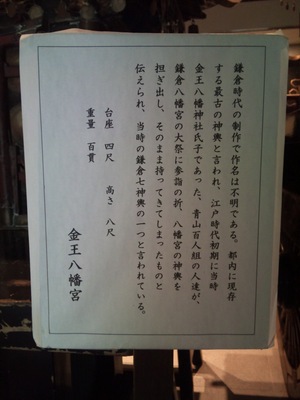 鎌倉時代の制作で作名は不明である。都内に現存
する最古の神輿と言われ、江戸時代初期に当時
金王八幡神社氏子であった、青山百人組の人達が、
鎌倉八幡宮の大祭に参詣の折、八幡宮の神輿を
担ぎ出し、そのまま持ってきてしまったものと
伝えられ、当時の鎌倉七神輿の一つと言われている。
台座 四尺 高さ 八尺
重量 百貫
金王八幡宮